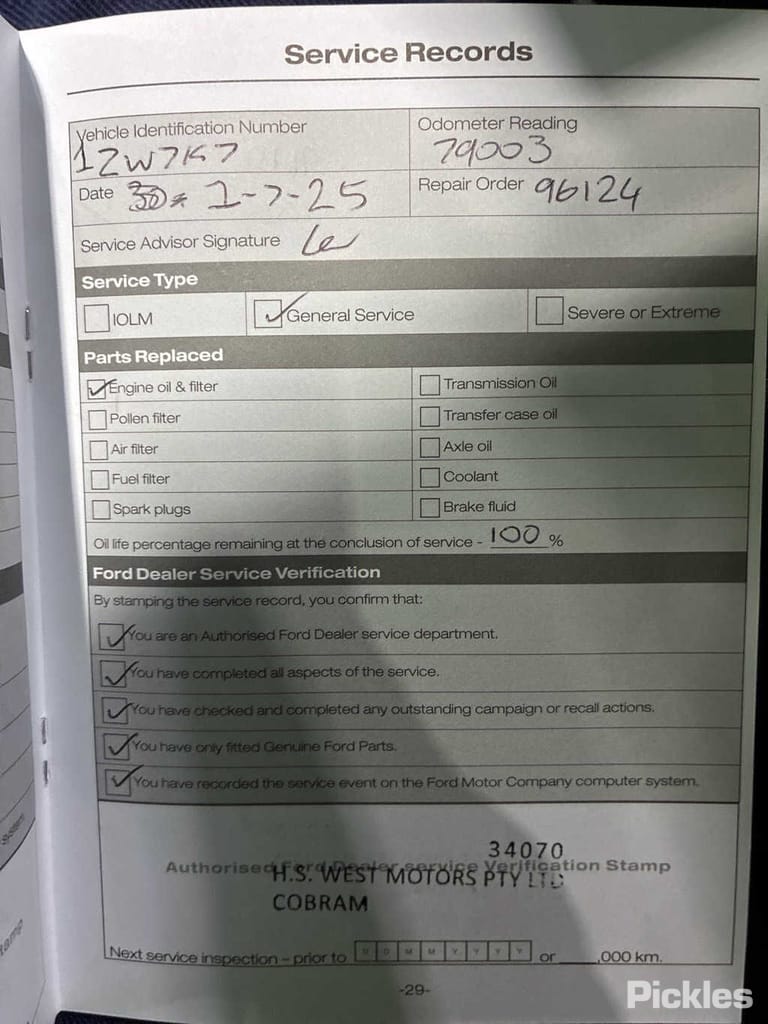 Service Records
Vehicle Identification Number
1ZW7K7
Odometer Reading
79003
Date 30 1-7-25
Repair Order 96124
Service Advisor Signature
Service Type
IOLM
General Service
Severe or Extreme
Parts Replaced
Engine oil & filter
Transmission Oil
Pollen filter
Transfer case oil
Air filter
Axle oil
Fuel filter
Coolant
Spark plugs
Brake fluid
Oil life percentage remaining at the conclusion of service - 100 %
Ford Dealer Service Verification
By stamping the service record, you confirm that:
You are an Authorised Ford Dealer service department.
You have completed all aspects of the service.
You have checked and completed any outstanding campaign or recall actions.
You have only fitted Genuine Ford Parts.
You have recorded the service event on the Ford Motor Company computer system.
34070
Authorised Ford Dealer service Verification Stamp
H.S. WEST MOTORS PTY LTD
COBRAM
Next service inspection – prior to D D M M Y Y Y Y or ,000 km.
-29-
Pickles